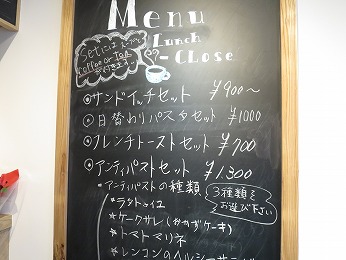 Menu
Lunch
- CLOSE
Setには
coffee or tea
◎サンドイッチセット ¥900〜
◎日替わりパスタセット ¥1000
◎フレンチトーストセット ¥700
◎アンティパストセット ¥1,300
・アンティパストの種類
3種類を
お選び下さい
★ラタトゥイユ
★ケークサレ(おかずケーキ)
★トマトマリネ
★レンコンのヘルシー